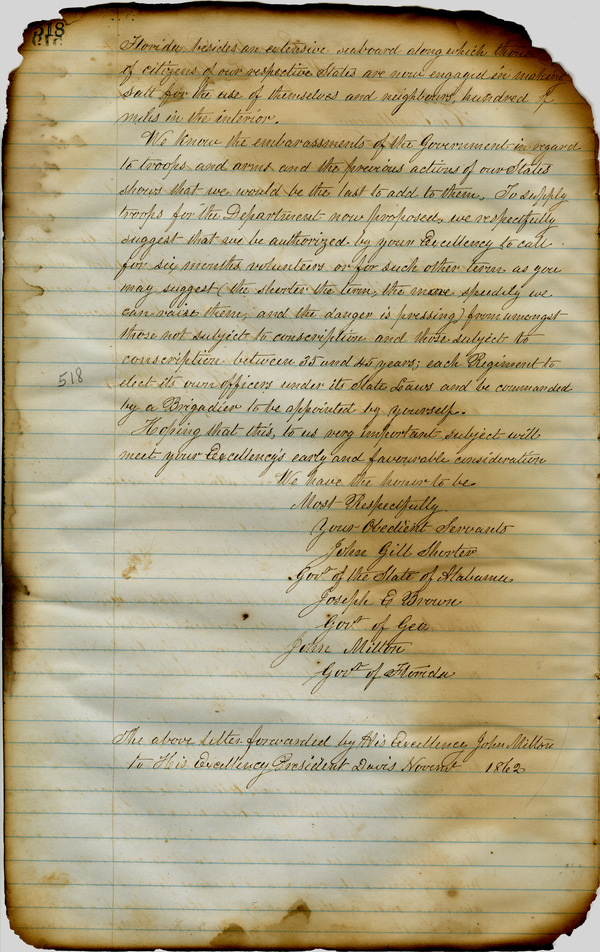 518
Florida besides an extensive seaboard along which
of citizens of our respective States are now engaged in making
Salt for the use of themselves and neighbours, hundred of
miles in the interior.
We know the embarassments of the Government in regard
to troops and arms and the previous actions of our States
shows that we would be the last to add to them. To supply
troops for the Department now proposed, we respectfully
suggest that we be authorized by your Excellency to call
for six months volunteers or for such other term as you
may suggest (the shorter the term, the more speedily we
can raise them, and the danger is pressing) from amongst
those not subject to conscription and those subject to
conscription between 35 and 45 years; each Regiment to
518
elect its own officers under its State Laws and be commanded
by a Brigadier to be appointed by yourself.
Hoping that this, to us very important subject will
meet your Excellency's early and favourable consideration
We have the honor to be
Most Respectfully
Your Obedient Servants
John Gill Shorter
Govr of the State of Alabama
Joseph E Brown
Govr of Geo
John Milton
Govr of Florida
The above letter forwarded by His Excellency John Milton
to His Excellency President Davis Novemr 1862